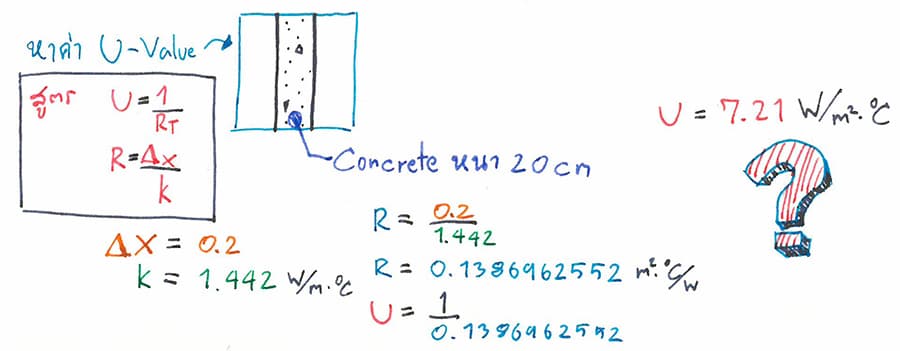 หาค่า U-Value
สูตร U = 1/RT
R = Δx/k
Concrete หนา 20 cm
Δx = 0.2
k = 1.442 W/m.°C
R = 0.2/1.442
R = 0.1386962552 m².°C/W
U = 1/0.1386962552
U = 7.21 W/m².°C
?